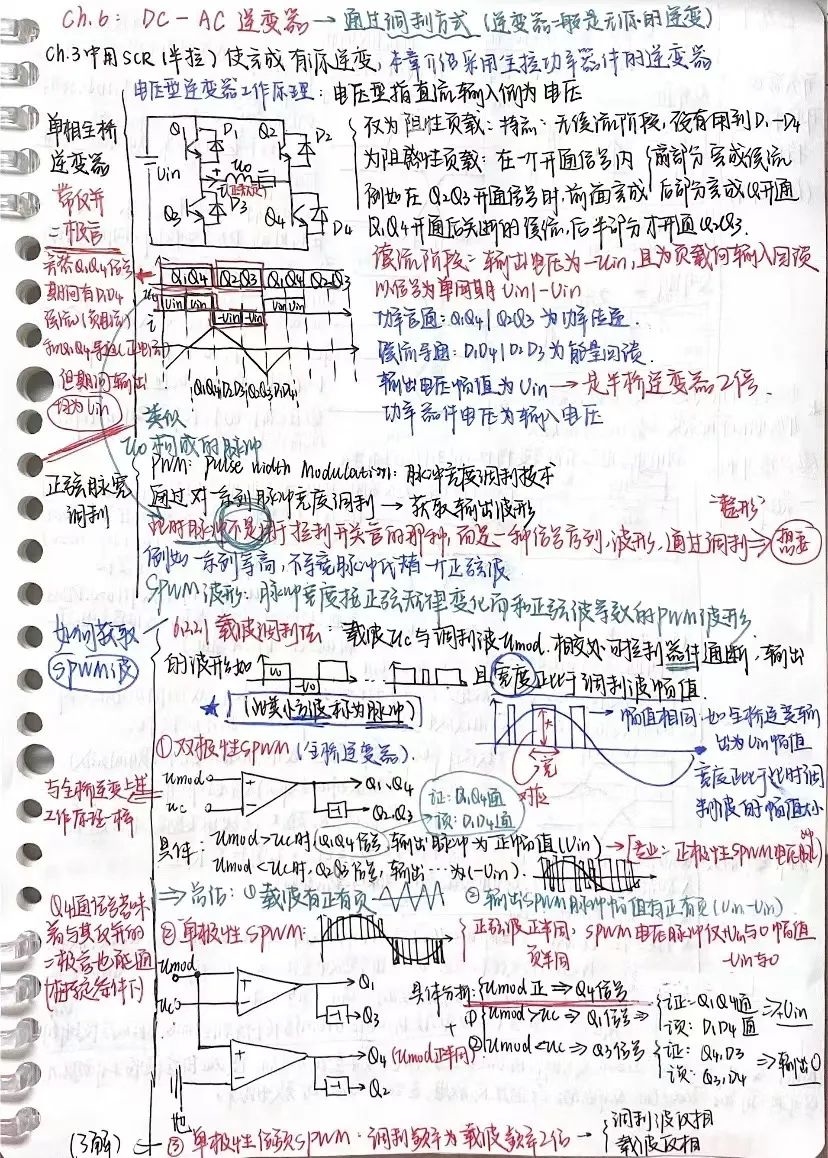 Ch.6: DC-AC 逆变器 → 通过调制方式 (逆变器一般是无源的逆变)
Ch.3中用SCR (半控) 使完成有源逆变, 本章介绍采用全控功率器件的逆变器
电压型逆变器工作原理: 电压型指直流输入侧为电压
单相全桥
逆变器
Q1 D1 Q2 D2
Uin
Uo
Q3 D3 Q4 D4
仅为阻性负载: 特点: 无续流阶段, 没有用到D1-D4
为阻感性负载: 在一个开通信号内 前部分完成续流
例如在Q2Q3开通信号时, 前面完成 后部分完成Q开通
Q1Q4开通后关断的续流, 后半部分才开通Q2Q3.
常仅并
二极管
Q1Q4信号
期间有D1D4
和Q1Q4导通
但期间输出
均为Uin
Q1Q4 Q2Q3 Q1Q4 Q2Q3
Uo
Uin Uin -Uin -Uin Uin Uin
i
Q1Q4 D2D3 Q2Q3 D1D4
续流阶段: 输出电压为-Uin, 且为负载向输入回馈
以信号为单周期 Uin|-Uin
功率管通: Q1Q4|Q2Q3 为功率传递.
续流导通: D1D4|D2D3 为能量回馈.
输出电压幅值为Uin → 是半桥逆变器2倍.
功率器件电压为输入电压
类似
Uo构成的脉冲
正弦脉宽
调制
PWM: pulse width Modulation: 脉冲宽度调制技术
通过对一系列脉冲宽度调制 → 获取输出波形
此时脉冲不是用于控制开关管的那种, 而是一种信号序列、波形, 通过调制 ⇒ 想要
"整形"
例如一系列等高, 不等宽脉冲代替一个正弦波
SPWM波形: 脉冲宽度按正弦规律变化而和正弦波等效的PWM波形.
如何获取
SPWM波
6.2.2) 载波调制法: 载波Uc与调制波Umod. 相交处可控制器件通断, 输出
的波形如 Uo -Uo → 且宽度正比于调制波幅值.
★ (以类小方波称为脉冲)
→ 幅值相同, 如全桥逆变输
出为Uin幅值
宽度正比于此时调
制波的幅值大小
宽
对应
① 双极性SPWM (全桥逆变器).
与全桥逆变上述
工作原理一样
Umod
Uc
+
-
→ Q1、Q4
-1 → Q2、Q3
证: Q1Q4通
误: D1D4通
具体: Umod>Uc时 (Q1Q4信号) 输出脉冲为正幅值(Uin) → 专业: 正极性SPWM电压脉冲
Umod<Uc时, Q2Q3信号, 输出…为(-Uin).
⇒ 总结: ① 载波有正有负 ② 输出SPWM脉冲幅值有正有负(Uin -Uin)
Q4通信号意味
着与其反并的
二极管也能通
(在特定条件下)
② 单极性SPWM:
正弦波正半周, SPWM电压脉冲仅+Uin与0幅值
负半周 -Uin与0
Umod
Uc
+
-
→ Q1
-1 → Q3
+
-
→ Q4 (Umod正半周)
-1 → Q2
具体分析: Umod正 ⇒ Q4信号
+
① Umod>Uc ⇒ Q1信号 ⇒ 证: Q1Q4通
误: D1D4通 ⇒ Uin
② Umod<Uc ⇒ Q3信号 证: Q4、D3
误: Q3、D4 ⇒ 输出0
(了解) ③ 单极性倍频SPWM: 调制频率为载波频率2倍 → 调制波反相
载波反相